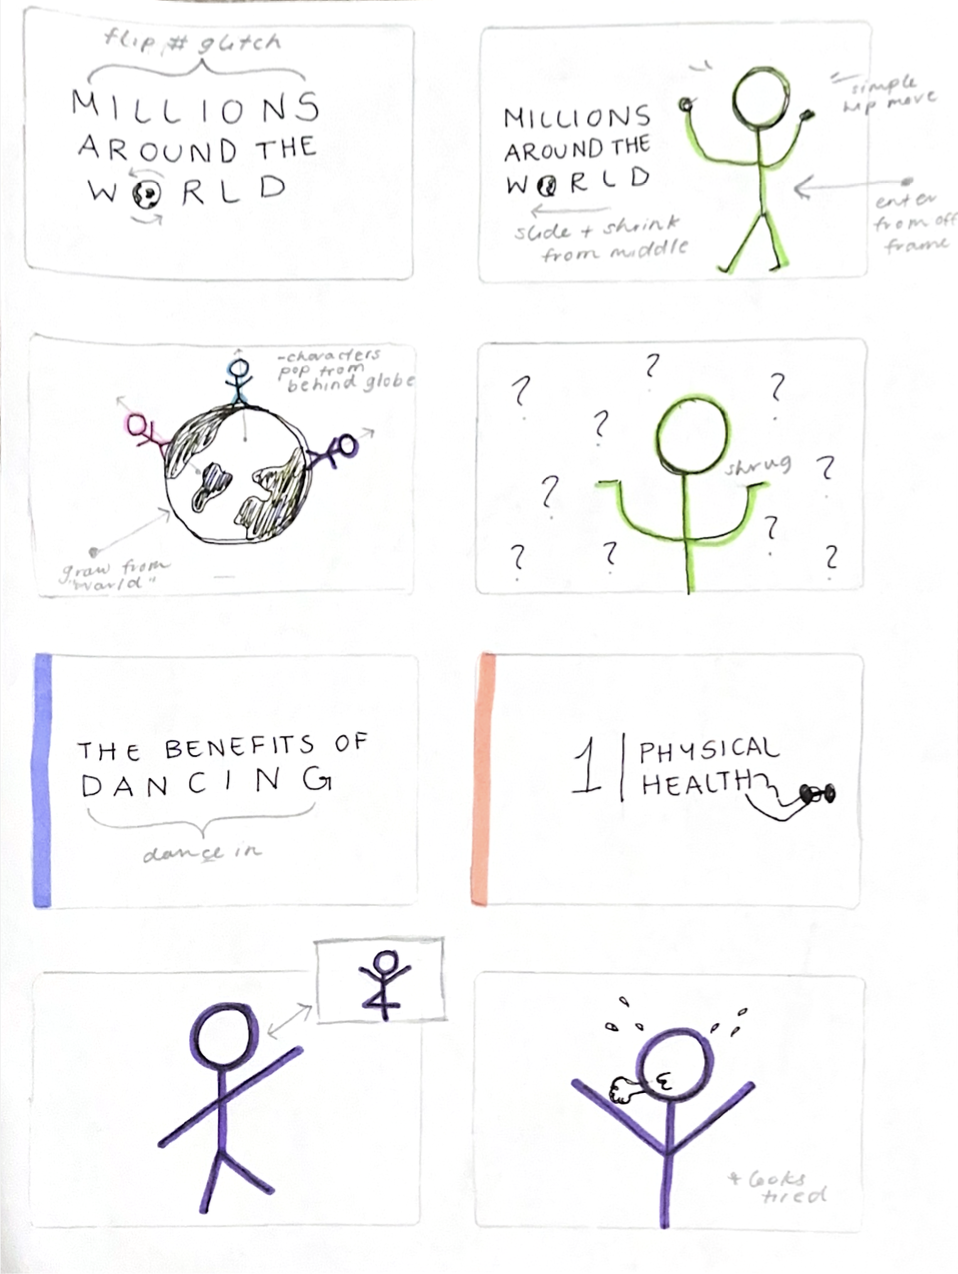 flip # glitch
MILLIONS
AROUND THE
WORLD
MILLIONS
AROUND THE
WORLD
slide + shrink
from middle
simple
hip move
enter
from off
frame
-characters
pop from
behind globe
grow from
"world"
shrug
? ? ? ? ? ? ? ? ? ?
THE BENEFITS OF
DANCING
dance in
1 | PHYSICAL
HEALTH
+ looks
tired